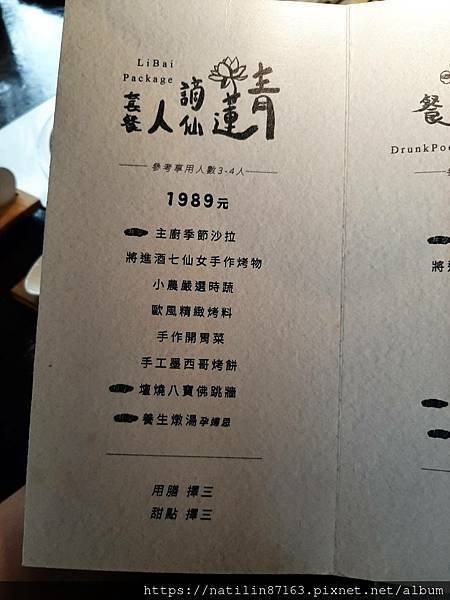 LiBai
Package
青蓮謫仙人套餐
參考享用人數3-4人
1989元
主廚季節沙拉
將進酒七仙女手作烤物
小農嚴選時蔬
歐風精緻烤料
手作開胃菜
手工墨西哥烤餅
壇燒八寶佛跳牆
養生燉湯孕婦忌
用膳 擇三
甜點 擇三
餐
DrunkPoe
將
https://natilin87163.pixnet.net/album